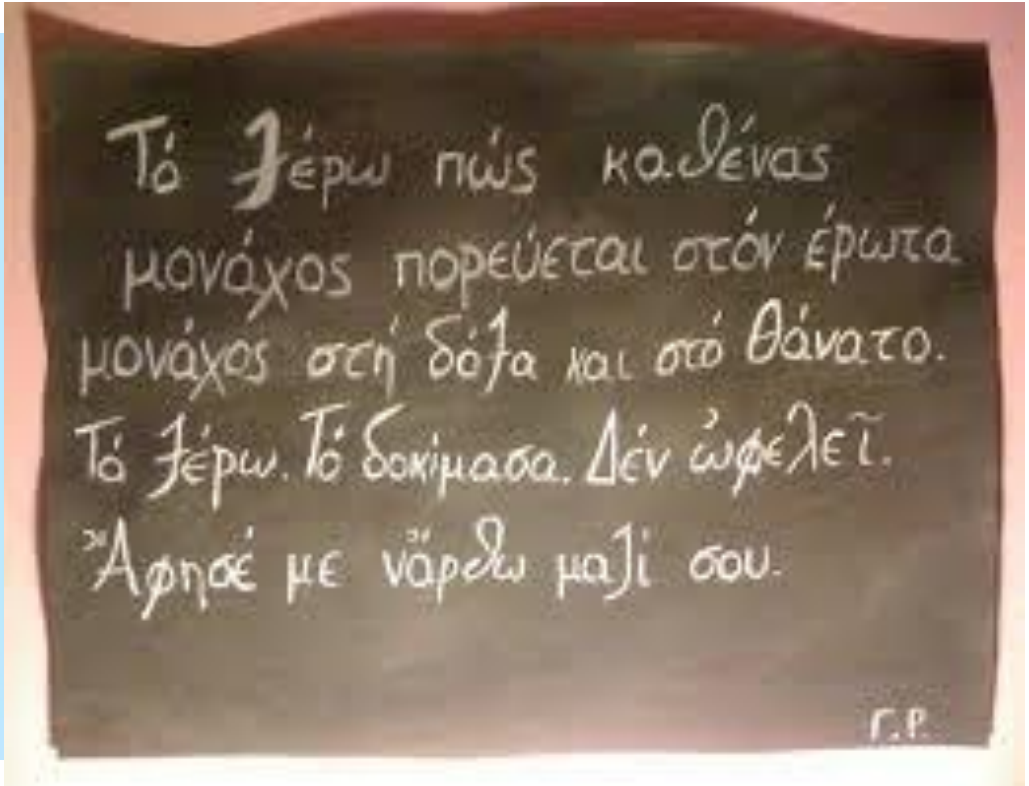 Τό ξέρω πώς καθένας
μονάχος πορεύεται στόν έρωτα
μονάχός στή δόξα και στό θάνατο.
Τό ξέρω. Τό δοκίμασα. Δέν ὠφελεῖ.
Ἄφησέ με νἄρθω μαζί σου.
Γ.Ρ.